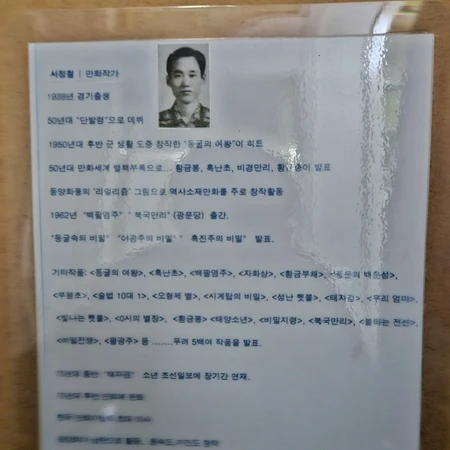 서정철 | 만화작가
1938년 경기출생
50년대 "단발령"으로 데뷔
1950년대 후반 군 생활 도중 창작한 "동굴의 여왕"이 히트
50년대 만화세계 별책부록으로... 황금봉, 흑난초, 비경만리, 발표
동양화풍의 "리얼리즘" 그림으로 역사소재만화를 주로 창작활동
1962년 "백팔염주" "북국만리" (광문당) 출간.
"동굴속의 비밀" "야광주의 비밀" " 흑진주의 비밀" 발표.
기타작품: <동굴의 여왕>, <흑난초>, <백팔염주>, <자화상>, <황금부채>,
<무봉초>, <술법 10대 1>, <오형제 별>, <시계탑의 비밀>, <성난 횃불>, <태자검>, <우리 엄마>,
<빛나는 횃불>, <0시의 별장>, <황금봉> <태양소년>, <비밀지령>, <북국만리>, <불타는 전선>,
<비밀전쟁>, <월광주> 등 .......무려 5백여 작품을 발표.
소년 조선일보에 장기간 연재.